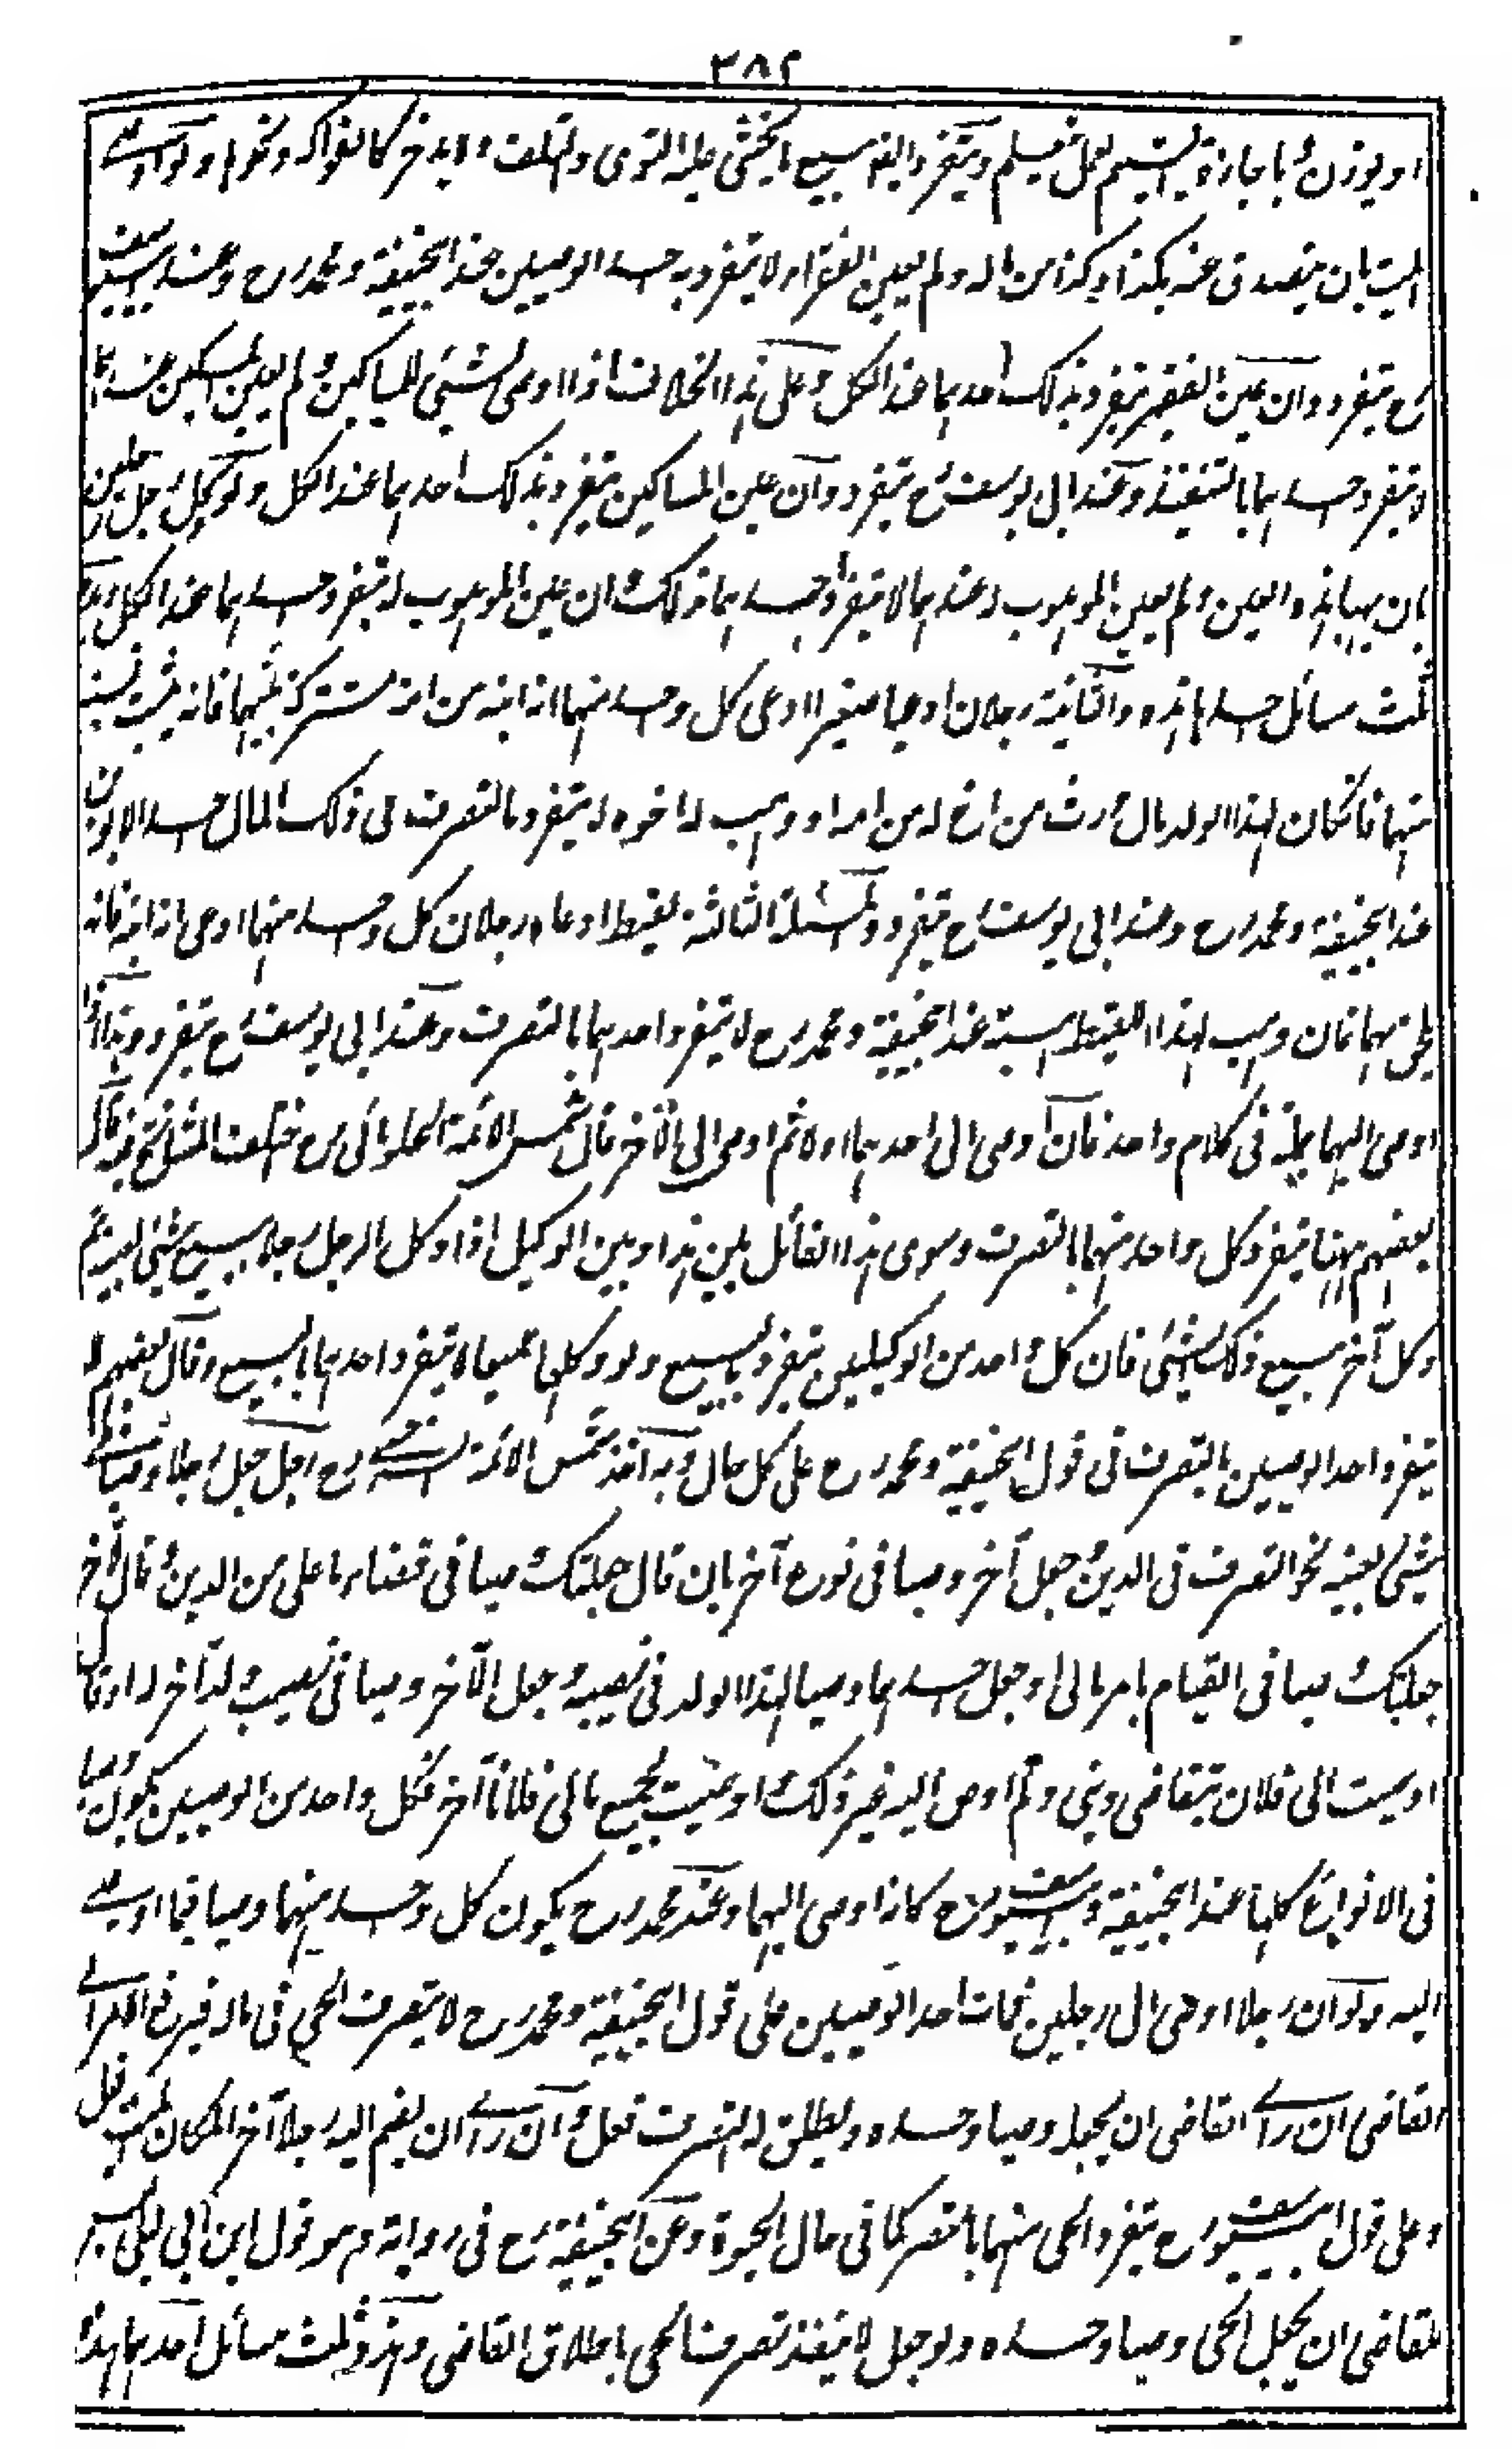 ٣٨٢
او يوزن و باجازة اليتيم لعمل يتعلم وينفرد ايضا ببيع ما يخشى عليه التوى والتلف ولا يدخر كالفواكه ونحوها ولو اوصى
الميت بان يتصدق عنه بكذا وكذا من ماله ولم يعين الفقراء لا يتفرد به احد الوصيين عند ابيحنيفة ومحمد رح وعند ابييوسف
رح يتفرد وان عين الفقير يتفرد بذلك احدهما عند الكل وعلى هذا الخلاف اذا اوصى بشيئ للمساكين ولم يعين المسكين عندهما
لا يتفرد احدهما بالتنفيذ وعند ابى يوسف رح يتفرد وان عين المساكين يتفرد بذلك احدهما عند الكل ولو وكل رجلين
بان يهبا هذه العين ولم يعين الموهوب له عندهما لا يتفرد احدهما بذلك وان عين الموهوب له يتفرد احدهما عند الكل
ثلث مسائل احدها هذه والثانية رجلان ادعيا صغيرا ادعى كل واحد منهما انه ابنه من امة مشتركة بينهما فانه يثبت نسبه
منهما فان كان لهذا الولد مال ورث من اخ له من امه او وهب له اخوه لا يتفرد بالتصرف فى ذلك المال احد الابوين
عند ابيحنيفة ومحمد رح وعند ابى يوسف رح يتفرد والمسئلة الثالثة لقيط ادعاه رجلان كل واحد منهما ادعى انه ابنه فانه
يلحق بهما فان وهب لهذا اللقيط هبة عند ابيحنيفة ومحمد رح لا يتفرد احدهما بالتصرف وعند ابى يوسف رح يتفرد وهذا اذا
اوصى اليهما جملة فى كلام واحد فان اوصى الى احدهما اولا ثم اوصى الى الآخر قال شمس الائمة الحلوائى رح اختلف المشائخ فيه قال
بعضهم ههنا يتفرد كل واحد منهما بالتصرف وسوى هذا القائل بين هذا وبين الوكيل اذا وكل الرجل رجلا ببيع شيئ بعينه ثم
وكل آخر ببيع ذلك الشيئ فان كل واحد من الوكيلين يتفرد بالبيع ولو وكلهما جميعا لا يتفرد احدهما بالبيع وقال بعضهم لا
يتفرد احد الوصيين بالتصرف فى قول ابيحنيفة ومحمد رح على كل حال وبه اخذ شمس الائمة السرخسى رح رجل جعل رجلا وصيا فى
شيئ بعينه نحو التصرف فى الدين وجعل آخر وصيا فى نوع آخر بان قال جعلتك وصيا فى قضاء ما على من الدين وقال لآخر
جعلتك وصيا فى القيام بامر مالى او جعل احدهما وصيا لهذا الولد فى نصيبه وجعل الآخر وصيا فى نصيب ولد آخر له او قال
اوصيت الى فلان بتقاضى دينى ولم اوص اليه غير ذلك واوصيت بجميع مالى فلانا آخر فكل واحد من الوصيين يكون وصيا
فى الانواع كلها عند ابيحنيفة وابييوسف رح كانه اوصى اليهما وعند محمد رح يكون كل واحد منهما وصيا فيما اوصى
اليه ولو ان رجلا اوصى الى رجلين فمات احد الوصيين على قول ابيحنيفة ومحمد رح لا يتصرف الحى فى ماله فيرفع الامر الى
القاضى ان رأى القاضى ان يجعله وصيا وحده ويطلق له التصرف فعل وان رأى ان يضم اليه رجلا آخر مكان الميت فعل
وعلى قول ابييوسف رح يتفرد الحى منهما بالتصرف كما فى حال الحيوة وعن ابيحنيفة رح فى رواية وهو قول ابن ابى ليلى ليس
للقاضى ان يجعل الحى وصيا وحده ولو جعل لا ينفذ تصرف الحى باطلاق القاضى وهذه ثلث مسائل احدها هذه